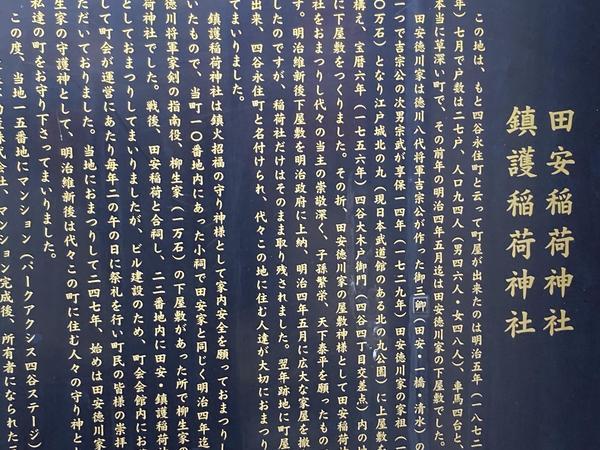 田安稲荷神社
鎮護稲荷神社
この地は、もと四谷永住町と云って町屋が出来たのは明治五年(一八七二
年)七月で戸数は二七戸、人口九四人(男四六人・女四八人)、車馬四台と、
本当に草深い町で、その前年の明治四年五月迄は田安徳川家の下屋敷でした。
田安徳川家は徳川八代将軍吉宗公が作った御三卿(田安、一橋、清水)の
一つで吉宗公の次男宗武が享保一四年(一七二九年)田安徳川家の家祖(一
〇万石)となり江戸城北の丸(現日本武道館のある北の丸公園)に上屋敷を
構え、宝暦六年(一七五六年)四谷大木戸御門(四谷四丁目交差点)内の地
に下屋敷をつくりました。その折、田安徳川家の屋敷神様として田安稲荷神
社をおまつりし代々の当主の崇敬深く、子孫繁栄、天下泰平を願ったもので
す。明治維新後下屋敷を明治政府に上納、明治四年五月に広大な家屋を撤
したのですが、稲荷社だけはそのまま取り残されました。翌年跡地に町屋
出来、四谷永住町と名付けられ、代々この地に住む人達が大切におまつり
てまいりました。
鎮護稲荷神社は鎮火招福の守り神様として家内安全を願っておまつりし
いたもので、当町一〇番地内にあった小祠で田安家と同じく明治四年迄
徳川将軍家剣の指南役、柳生家(一万石)の下屋敷があった所で柳生家の
荷神社でした。戦後、田安稲荷と合祠し、二二番地内に田安・鎮護稲荷神
しておまつりしてまいりましたが、ビル建設のため、町会会館内にお
して町会が運営にあたり毎年二の午の日に祭礼を行い町民の皆様の崇拝
ただいておりました。当地におまつりして二四七年、始めは田安徳川家
生家の守護神として、明治維新後は代々この町に住む人々の守り神と
私達の町をお守り下さってまいりました。
この度、当地一五番地にマンション(パークアクシス四谷ステージ)
マンション完成後、所有者になられた三